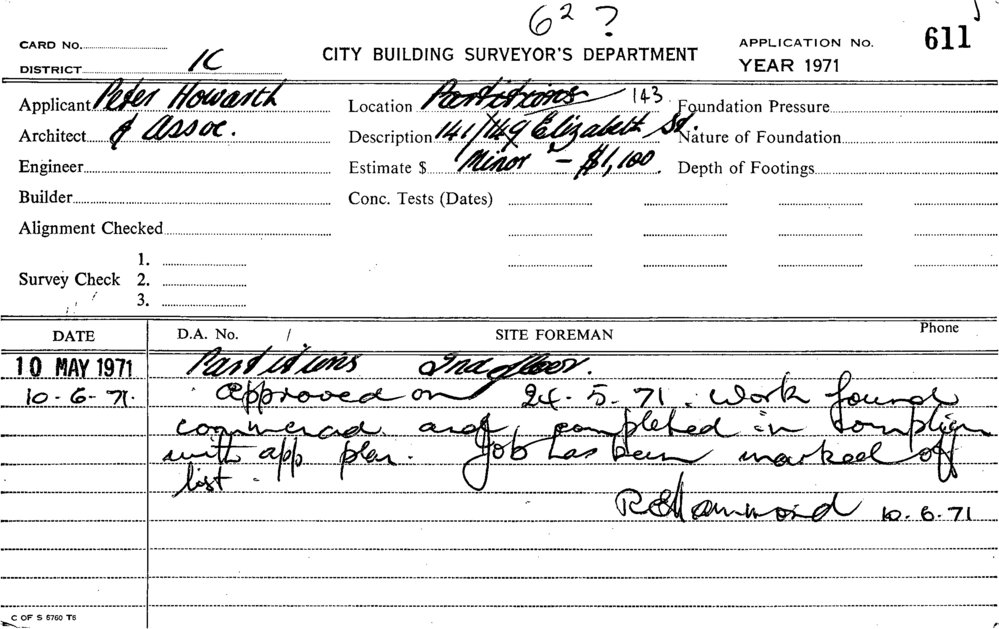 6² ?
CARD No.
DISTRICT 1C
CITY BUILDING SURVEYOR'S DEPARTMENT
APPLICATION No. 611
YEAR 1971
Applicant Peter Howarth
Location Partitions 143
Foundation Pressure
Architect & Assoc.
Description 141/149 Elizabeth St.
Nature of Foundation
Engineer
Estimate $ "Minor" - $1,100
Depth of Footings
Builder
Conc. Tests (Dates)
Alignment Checked
Survey Check
1.
2.
3.
DATE
D.A. No. /
SITE FOREMAN
Phone
10 MAY 1971 Partitions 2nd floor.
10-6-71. Approved on 24-5-71. Work found
commenced and completed in complian
with app plan. Job has been marked off
list.
REHammond 10.6.71
C OF S 5760 T6